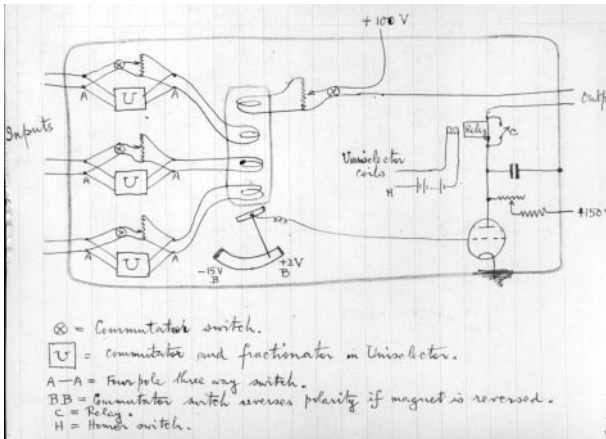 +100V
A U A
Output
Inputs
Relay
C
Uniselector
coils
A U A
H
+150V
-15V
B
+2V
B
A U A
⊗ = Commutator switch.
U = commutator and fractionator in Uniselector.
A—A = Four pole three way switch.
B B = Commutator switch reverses polarity if magnet is reversed.
C = Relay.
H = Homer switch.